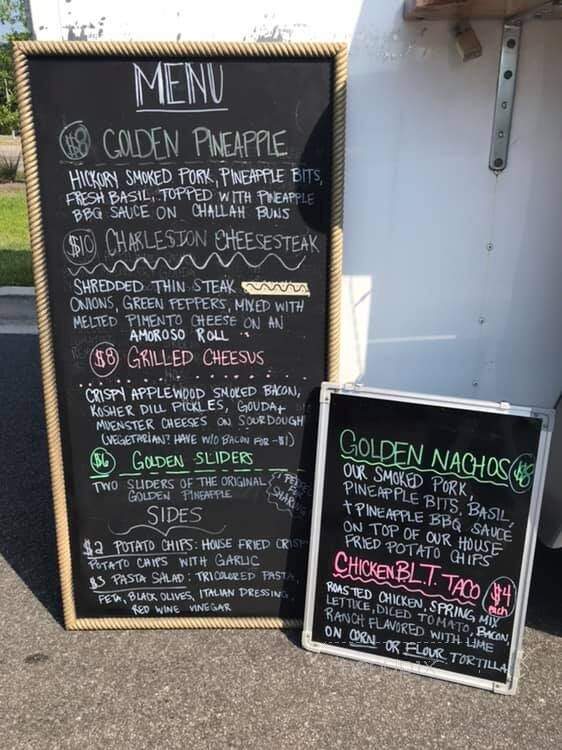 MENU
$8 GOLDEN PINEAPPLE
HICKORY SMOKED PORK, PINEAPPLE BITS,
FRESH BASIL, TOPPED WITH PINEAPPLE
BBQ SAUCE ON CHALLAH BUNS
$10 CHARLESTON CHEESESTEAK
SHREDDED THIN STEAK
ONIONS, GREEN PEPPERS, MIXED WITH
MELTED PIMENTO CHEESE ON AN
AMOROSO ROLL
$8 GRILLED CHEESUS
CRISPY APPLEWOOD SMOKED BACON,
KOSHER DILL PICKLES, GOUDA +
MUENSTER CHEESES ON SOURDOUGH
(VEGETARIAN? HAVE W/O BACON FOR -$1)
$6 GOLDEN SLIDERS
TWO SLIDERS OF THE ORIGINAL
GOLDEN PINEAPPLE
SHARING
SIDES
$2 POTATO CHIPS: HOUSE FRIED CRISP
POTATO CHIPS WITH GARLIC
$3 PASTA SALAD: TRICOLORED PASTA,
FETA, BLACK OLIVES, ITALIAN DRESSING,
RED WINE VINEGAR
GOLDEN NACHOS $8
OUR SMOKED PORK,
PINEAPPLE BITS, BASIL,
+ PINEAPPLE BBQ SAUCE
ON TOP OF OUR HOUSE
FRIED POTATO CHIPS
CHICKEN B.L.T. TACO $4 each
ROASTED CHICKEN, SPRING MIX
LETTUCE, DICED TOMATO, BACON,
RANCH FLAVORED WITH LIME
ON CORN OR FLOUR TORTILLA